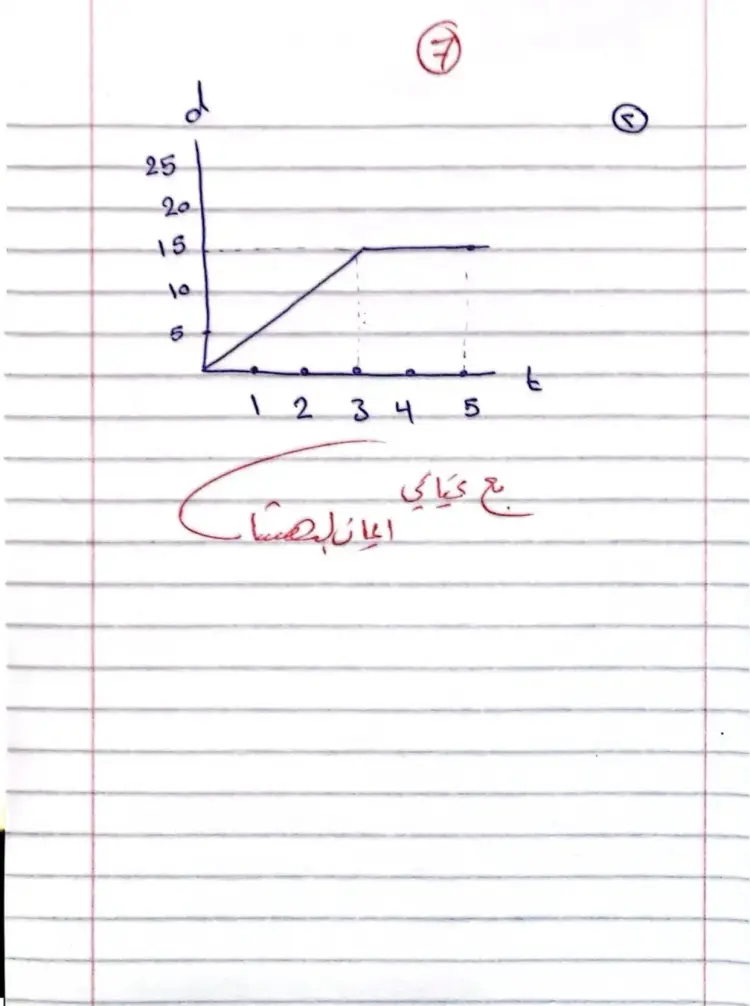 7
٢
d
25
20
15
10
5
t
1 2 3 4 5
مع تحياتي